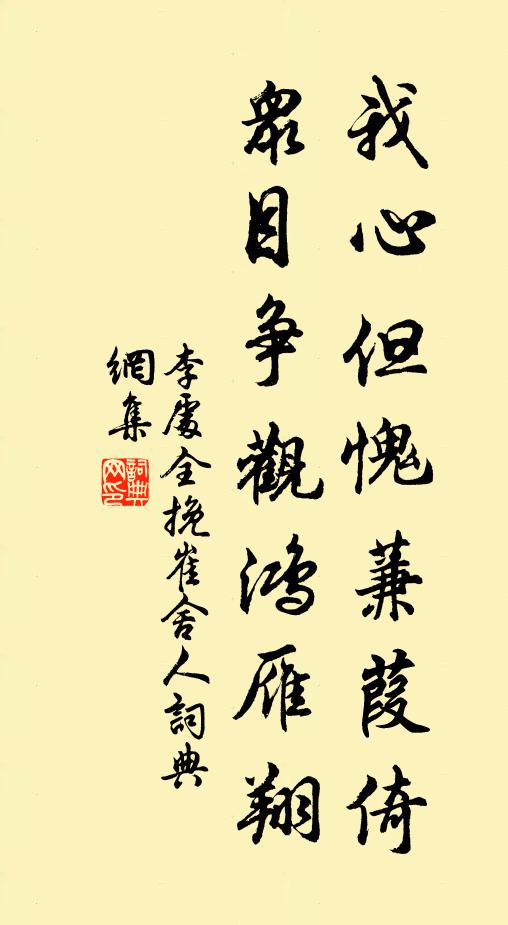 我心但愧蒹葭倚
眾目爭觀鴻雁翔
李處全挽崔舍人詞典
網集
詞典網印